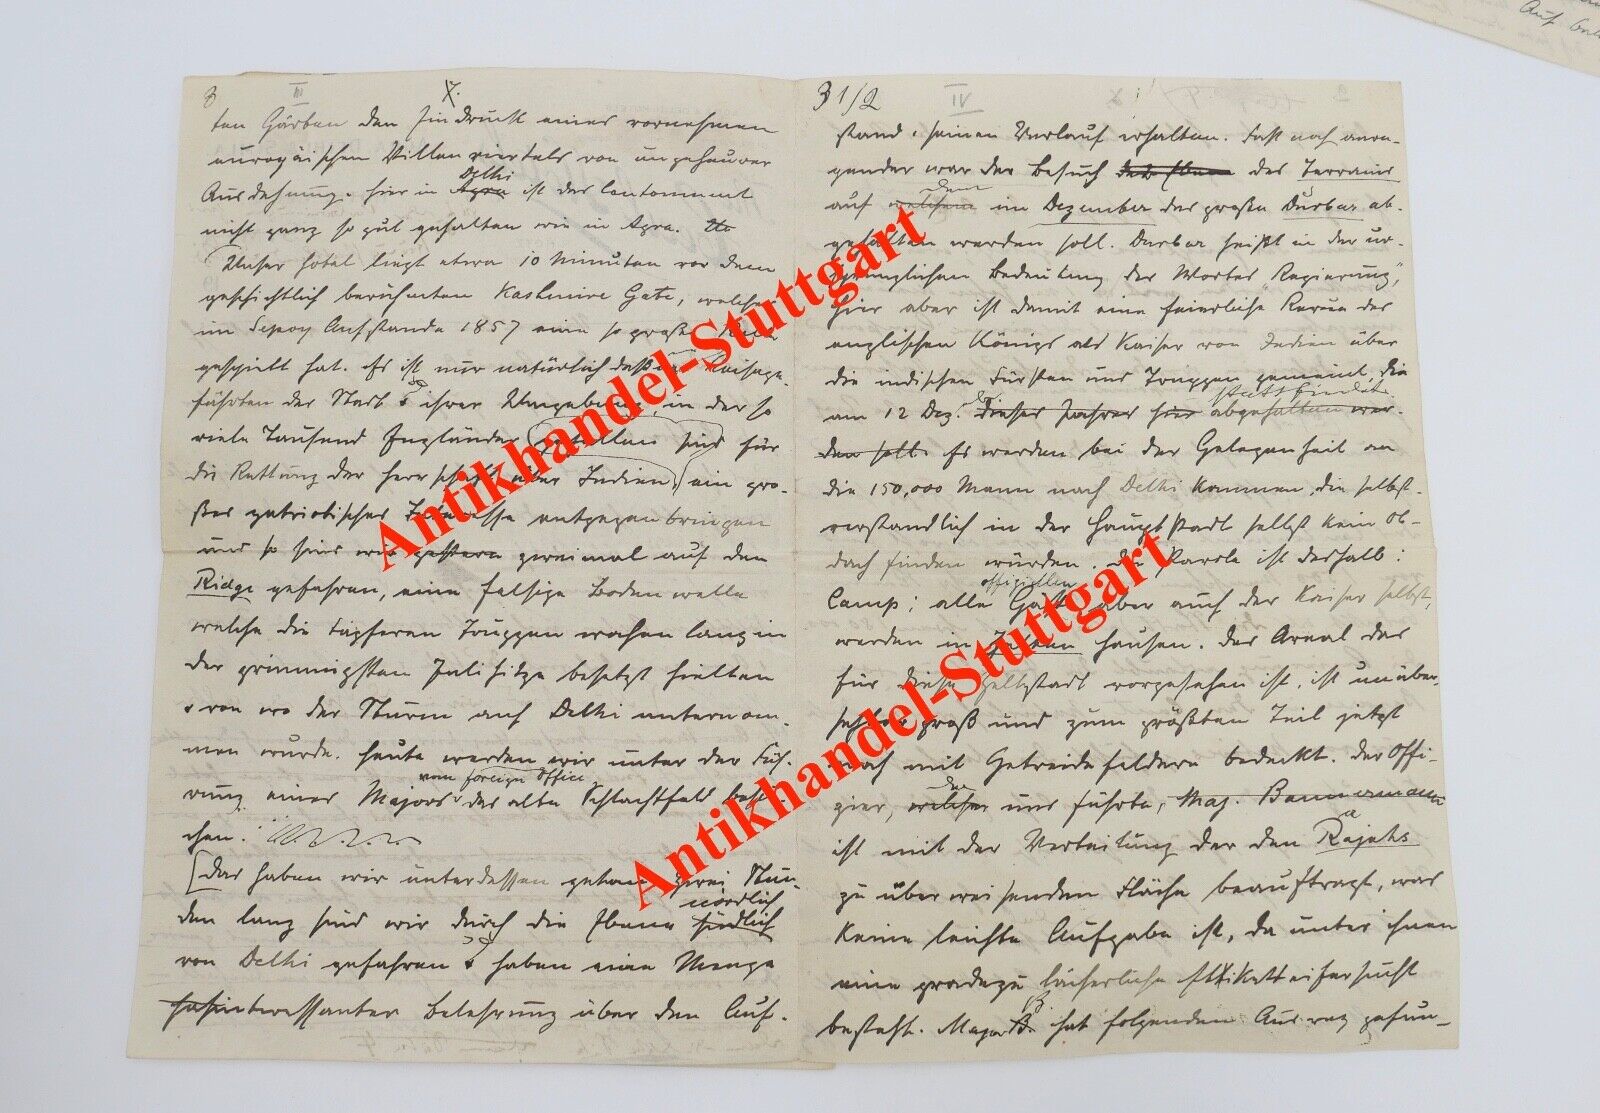 Auf
3
III
7.
ten Gärten den Eindruck eines vornehmen
europäischen Villenviertels von ungeheurer
Delhi
Ausdehnung. Hier in Agra ist das Cantonment
nicht ganz so gut gehalten wie in Agra.
Unser Hotel liegt etwa 10 Minuten vor dem
geschichtlich berühmten Kashmire Gate, welches
im Sepoy Aufstande 1857 eine so große Rolle
gespielt hat. Es ist nur natürlich daß die Reisege-
fährten der Stadt & ihrer Umgebung, in der so
viele Tausend Engländer gefallen sind für
die Rettung der Herrschaft über Indien, ein gro-
ßes patriotisches Interesse entgegenbringen
und so sind wir gestern zweimal auf den
Ridge gefahren, eine felsige Bodenwelle
welche die tapferen Truppen wochenlang in
der grimmigsten Julihitze besetzt hielten
& von wo der Sturm auf Delhi unternom-
men wurde. Heute werden wir unter der Füh-
vom foreign Office
rung eines Majors das alte Schlachtfeld besu-
chen.
Das haben wir unterdessen getan. Zwei Stun-
nördlich
den lang sind wir durch die Ebene südlich
von Delhi gefahren & haben eine Menge
interessanter Belehrung über den Auf-
3 1/2
IV
stand & seinen Verlauf erhalten. Fast noch anre-
gender war der Besuch der Ebene des Terrains
dem
auf welchem im Dezember das große Durbar ab-
gehalten werden soll. Durbar heißt in der ur-
sprünglichen Bedeutung des Wortes "Regierung",
hier aber ist damit eine feierliche Revue des
englischen Königs als Kaiser von Indien über
die indischen Fürsten und Truppen gemeint, die
stattfindet
am 12 Dez. dieses Jahres hier abgehalten wer-
den soll. Es werden bei der Gelegenheit an
die 150,000 Mann nach Delhi kommen, die selbst-
verständlich in der Hauptstadt selbst kein Ob-
dach finden würden. Die Parole ist deshalb:
offiziellen
Camp; alle Gäste, aber auch der Kaiser selbst,
werden in Zelten hausen. Das Areal das
für diese Zeltstadt vorgesehen ist, ist unüber-
sehbar groß und zum größten Teil jetzt
noch mit Getreidefeldern bedeckt. Der Offi-
der
zier, welcher uns führte, Maj. Bannermann
ist mit der Verteilung der den Rajahs
zu überweisenden Fläche beauftragt, was
keine leichte Aufgabe ist, da unter ihnen
eine gradezu lächerliche Etiketteifersucht
besteht. Major B. hat folgenden Ausweg gefun-
Antikhandel-Stuttgart
Antikhandel-Stuttgart